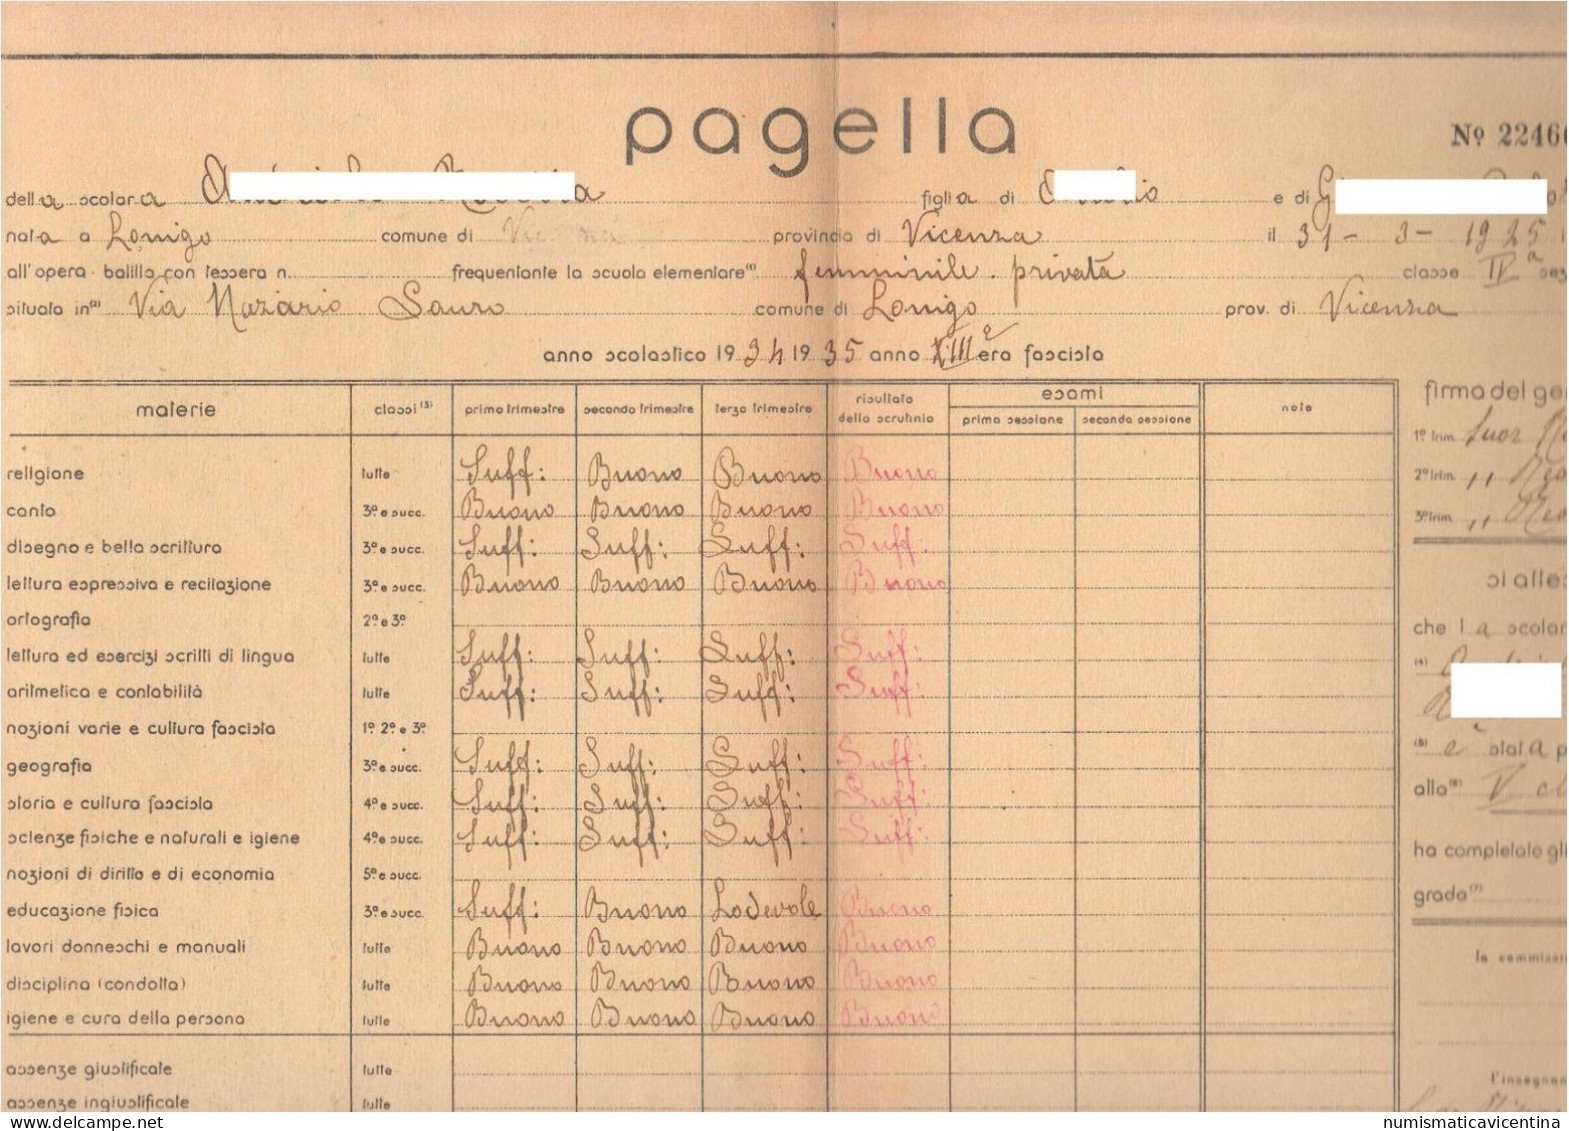 pagella
Nº 22466
della scolara figlia di e di
nata a Lonigo comune di Vicenza provincia di Vicenza il 31-3-1925
all'opera balilla con tessera n. frequentante la scuola elementare(1) femminile privata classe IVa sez
situata in(2) Via Nazario Sauro comune di Lonigo prov. di Vicenza
anno scolastico 1934 1935 anno XIIIe era fascista
materie classi(3) primo trimestre secondo trimestre terzo trimestre risultato dello scrutinio esami prima sessione seconda sessione note
religione tutte Suff: Buono Buono Buono
canto 3ª e succ. Buono Buono Buono Buono
disegno e bella scrittura 3ª e succ. Suff: Suff: Suff: Suff:
lettura espressiva e recitazione 3ª e succ. Buono Buono Buono Buono
ortografia 2ª e 3ª
lettura ed esercizi scritti di lingua tutte Suff: Suff: Suff: Suff:
aritmetica e contabilità tutte Suff: Suff: Suff: Suff:
nozioni varie e cultura fascista 1ª 2ª e 3ª
geografia 3ª e succ. Suff: Suff: Suff: Suff:
storia e cultura fascista 4ª e succ. Suff: Suff: Suff: Suff:
scienze fisiche e naturali e igiene 4ª e succ. Suff: Suff: Suff: Suff:
nozioni di diritto e di economia 5ª e succ.
educazione fisica 3ª e succ. Suff: Buono Lodevole Buono
lavori donneschi e manuali tutte Buono Buono Buono Buono
disciplina (condotta) tutte Buono Buono Buono Buono
igiene e cura della persona tutte Buono Buono Buono Buono
assenze giustificate tutte
assenze ingiustificate tutte
firma del ge
1º trim. Suor
2º trim. ,,
3º trim. ,,
si attes
che la scolar
(4)
(5) è stata p
alla(6) V cl
ha completato gl
grado(7)
la commissi
l'insegnan
www.delcampe.net
numismaticavicentina